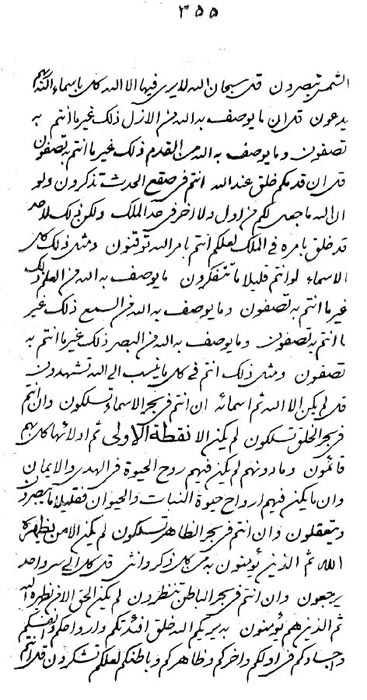 ۳۵۵
الشمس تبصرون قل سبحان الله لا يرى فيها الا الله كل باسماء الله هم
يدعون قل ان ما يوصف به الله من الازل ذلك غير ما انتم به
تصفون و ما يوصف به الله من القدم ذلك غير ما انتم به تصفون
قل ان قدمكم خلق عند الله انتم في صقع الحدث تذكرون ولو
ان الله ما جعل لكم من اول و لا اخر في حد الملك ولكن ذلك لاحد
قد خلق بامره في الملك لعلكم انتم بامر الله توقنون و مثل ذلك كل
الاسماء لو انتم قليلا ما تتفكرون ما يوصف به الله من العلم ذلك
غير ما انتم به تصفون و ما يوصف به الله من السمع ذلك غير
ما انتم به تصفون و ما يوصف به الله من البصر ذلك غير ما انتم به
تصفون و مثل ذلك انتم في كل ما ينسب الى الله تشهدون
قل لم يكن الا الله ثم اسمائه ان انتم في بحر الاسماء تسلكون و ان انتم
في بحر الخلق تسلكون لم يكن الا نقطة الاولى ثم ادلائها كل بهم
قائمون و ما دونهم لم يكن فيهم روح الحيوة في الهدى و الايمان
و ان ما يكن فيهم ارواح حيوة النبات و الحيوان فقليلا ما يبصرون
و يتعقلون و ان انتم في بحر الظاهر تسلكون لم يكن الا من يظهره
الله ثم الذين يؤمنون به من كل ذكر و انثى قل كل الى سر واحد
يرجعون و ان انتم في بحر الباطن تنظرون لم يكن الحق الا من يظهره الله
ثم الذين هم يؤمنون به سيربيكم الله خلق افئدتكم و ارواحكم و انفسكم
و اجسادكم في اولكم و اخركم و ظاهركم و باطنكم لعلكم تشكرون قل انتم